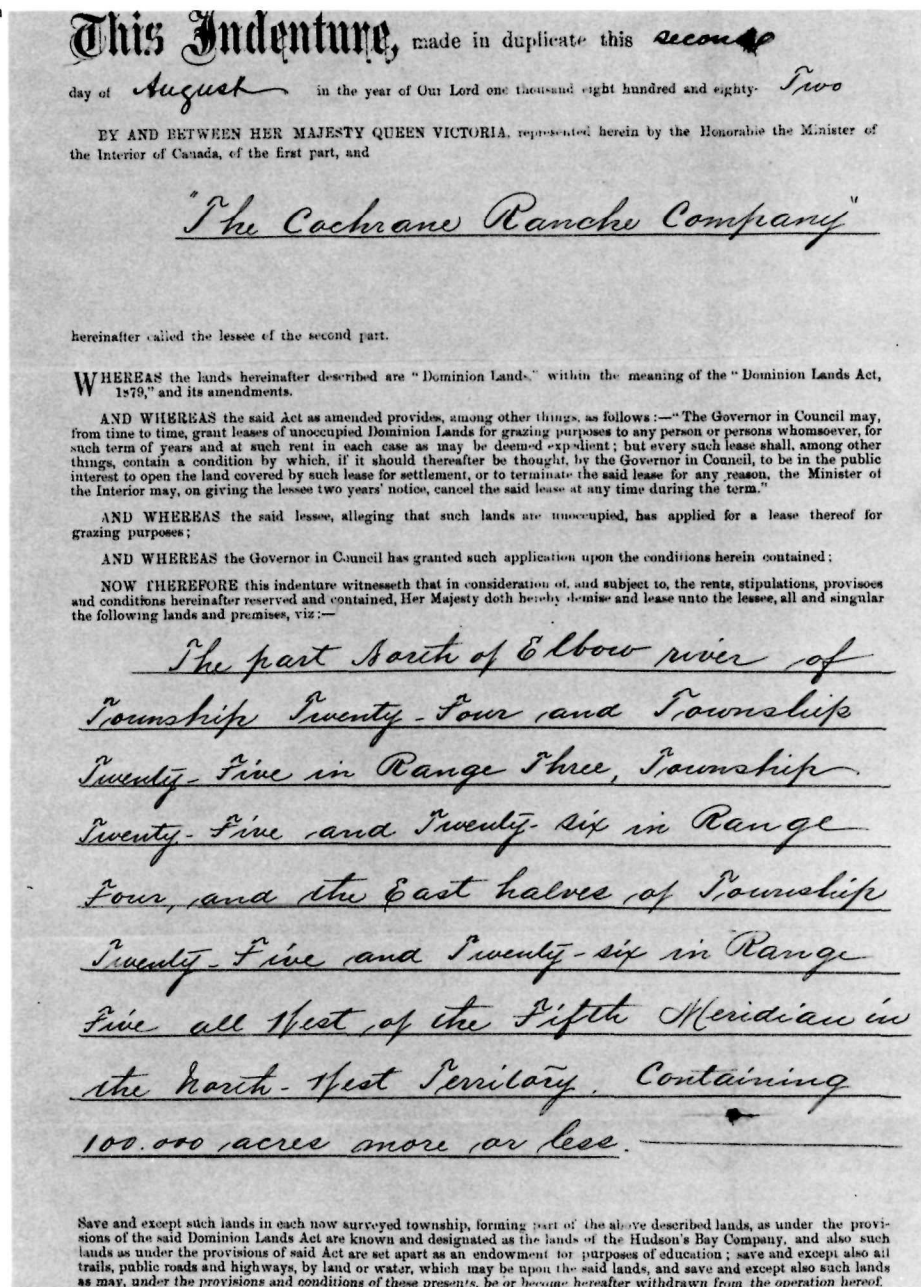 This Indenture, made in duplicate this second
day of August in the year of Our Lord one thousand eight hundred and eighty- Two
BY AND BETWEEN HER MAJESTY QUEEN VICTORIA, represented herein by the Honorable the Minister of
the Interior of Canada, of the first part, and
"The Cochrane Ranche Company"
hereinafter called the lessee of the second part.
WHEREAS the lands hereinafter described are "Dominion Lands," within the meaning of the "Dominion Lands Act,
1879," and its amendments.
AND WHEREAS the said Act as amended provides, among other things, as follows:—"The Governor in Council may,
from time to time, grant leases of unoccupied Dominion Lands for grazing purposes to any person or persons whomsoever, for
such term of years and at such rent in each case as may be deemed expedient; but every such lease shall, among other
things, contain a condition by which, if it should thereafter be thought, by the Governor in Council, to be in the public
interest to open the land covered by such lease for settlement, or to terminate the said lease for any reason, the Minister of
the Interior may, on giving the lessee two years' notice, cancel the said lease at any time during the term."
AND WHEREAS the said lessee, alleging that such lands are unoccupied, has applied for a lease thereof for
grazing purposes;
AND WHEREAS the Governor in Council has granted such application upon the conditions herein contained;
NOW THEREFORE this indenture witnesseth that in consideration of, and subject to, the rents, stipulations, provisoes
and conditions hereinafter reserved and contained, Her Majesty doth hereby demise and lease unto the lessee, all and singular
the following lands and premises, viz:—
The part North of Elbow river of
Township Twenty-Four and Township
Twenty-Five in Range Three, Township
Twenty-Five and Twenty-six in Range
Four, and the East halves of Township
Twenty-Five and Twenty-six in Range
Five all West of the Fifth Meridian in
the North-West Territory. Containing
100.000 acres more or less.
Save and except such lands in each now surveyed township, forming part of the above described lands, as under the provi-
sions of the said Dominion Lands Act are known and designated as the lands of the Hudson's Bay Company, and also such
lands as under the provisions of said Act are set apart as an endowment for purposes of education; save and except also all
trails, public roads and highways, by land or water, which may be upon the said lands, and save and except also such lands
as may, under the provisions and conditions of these presents, be or become hereafter withdrawn from the operation hereof.